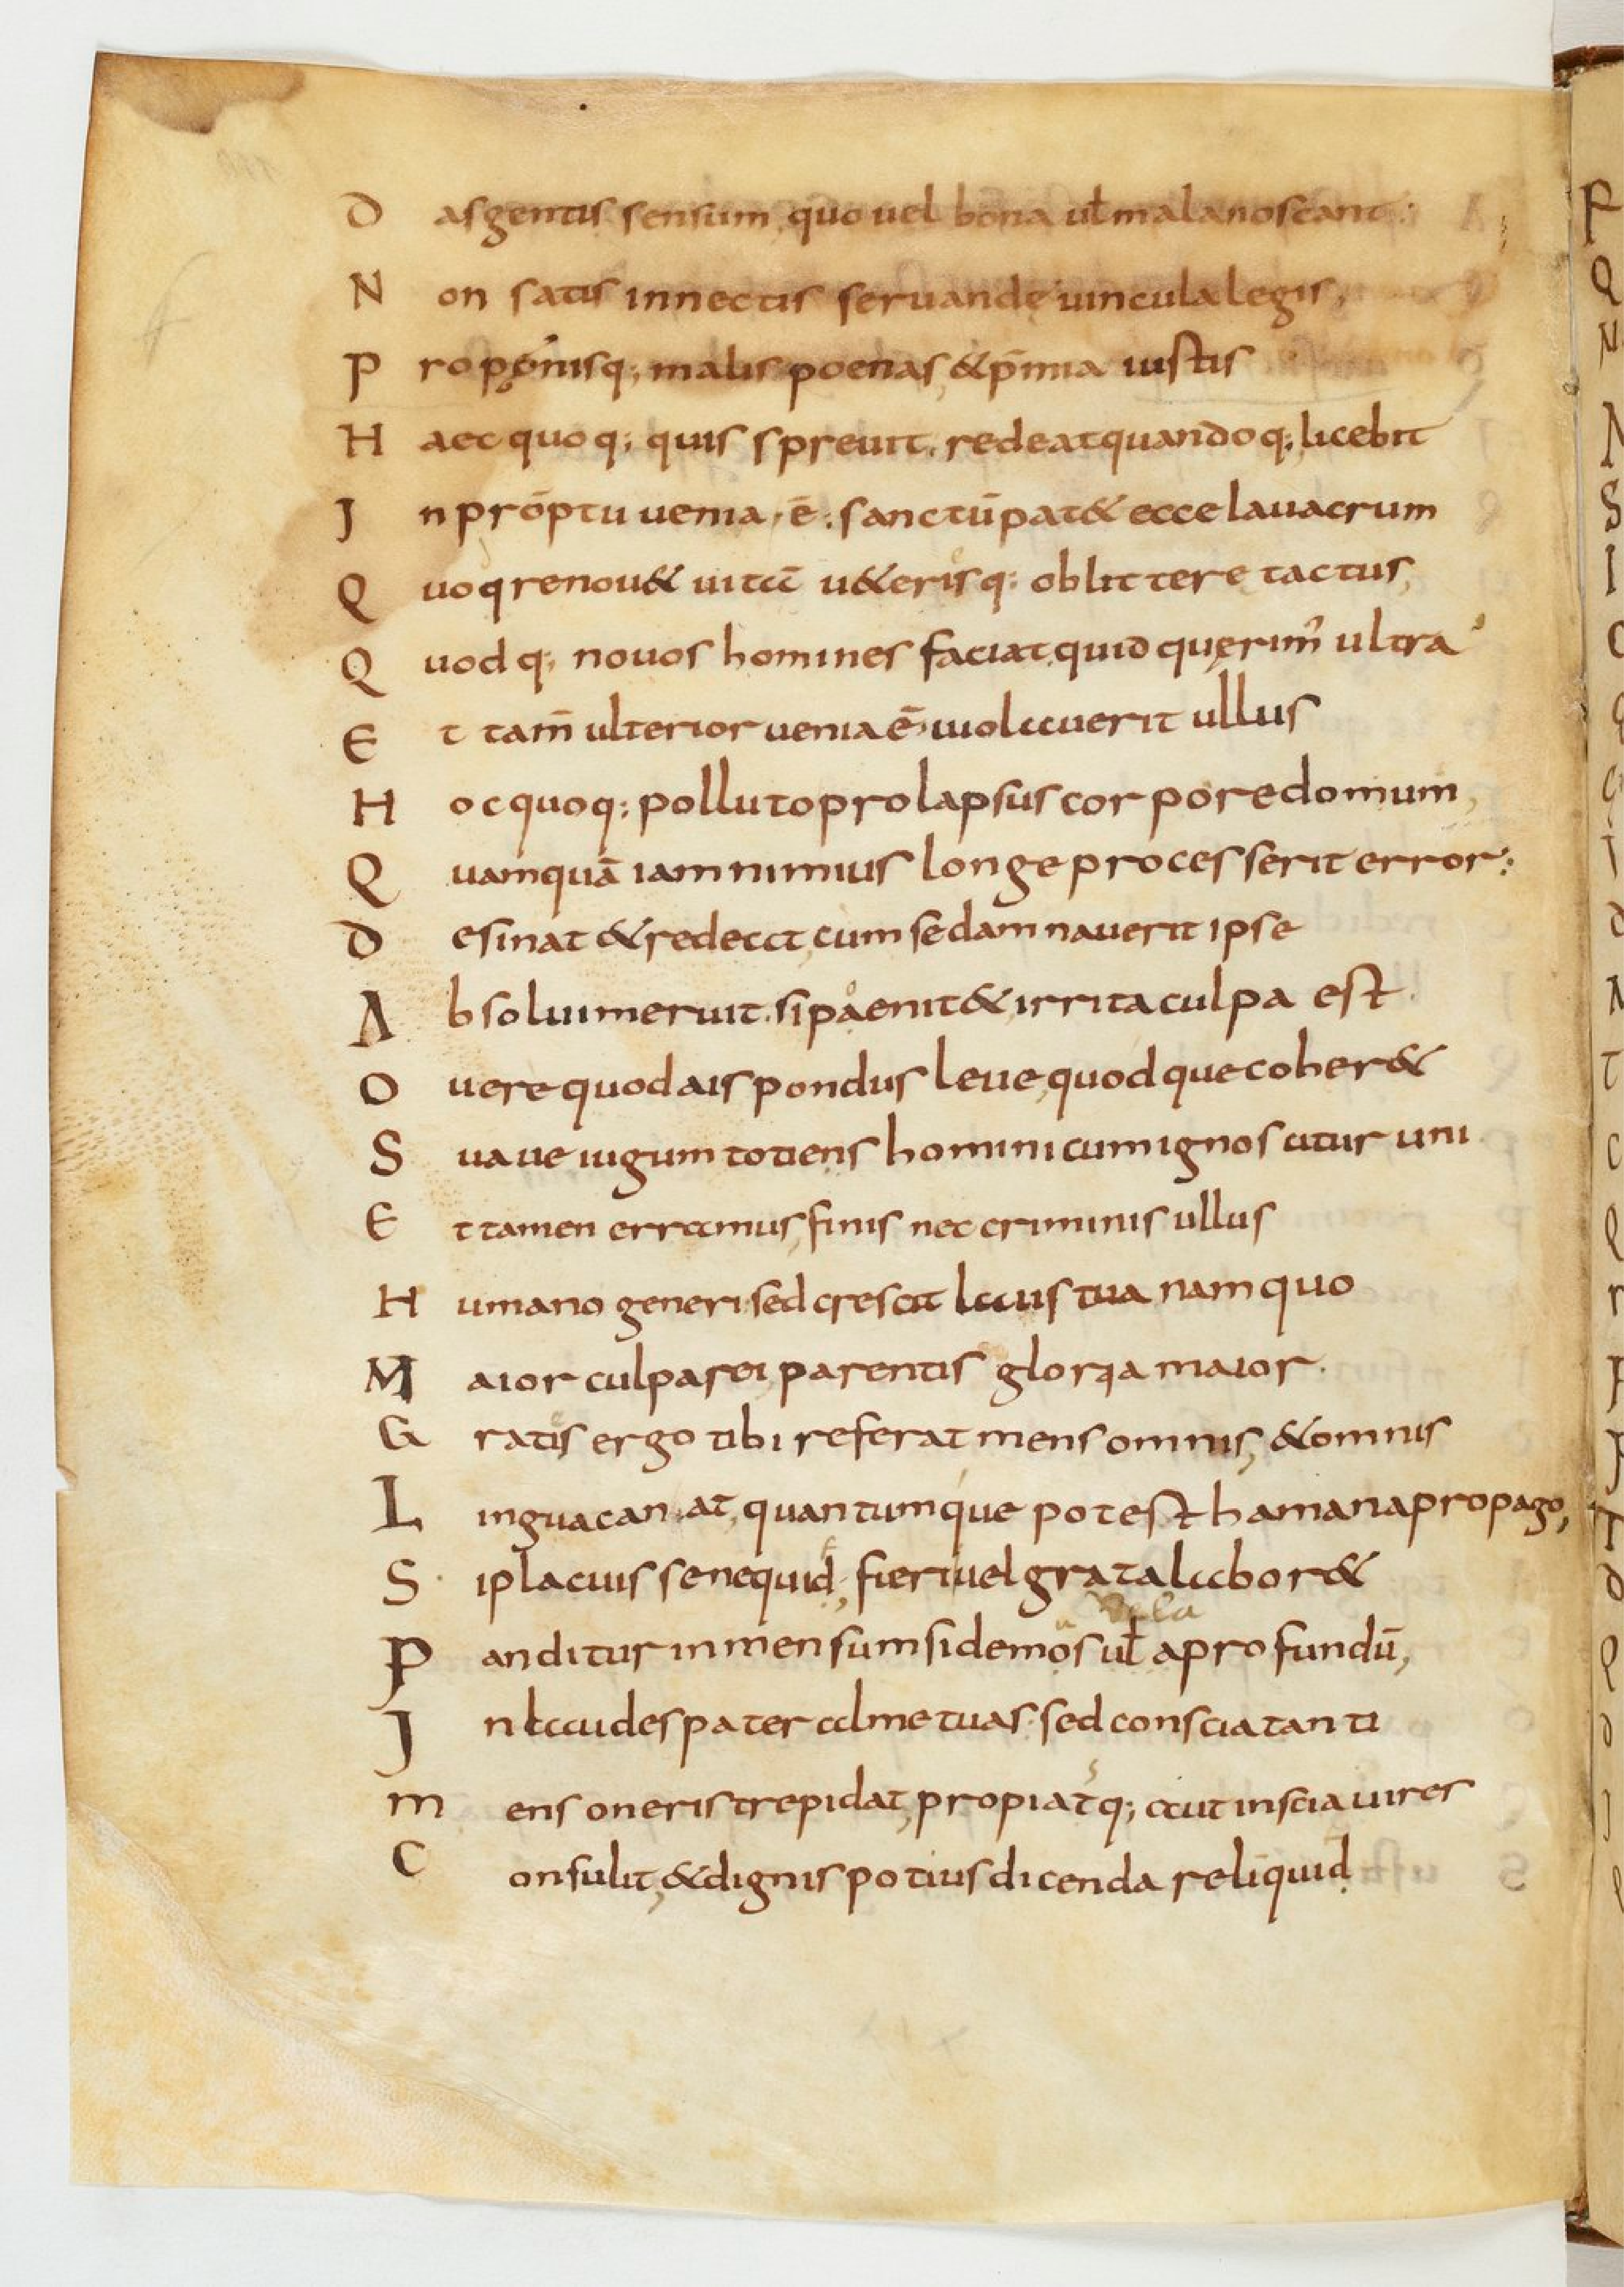 D as gentis sensum, quo uel bona ul̄ mala noscant:
N on satis innectis seruandę uincula legis,
P roponisq; malis poenas, & p̄mia iustis
H aec quoq; quis spreuit. redeat quandoq; licebit
J n prōptu uenia ē: sanctū pat& ecce lauacrum
Q uoq renou& uitā u&erisq: oblittere tactus,
Q uodq; novos homines faciat quid quęrim᾽ ultra
E t tam̄ ulterior uenia ē, uiolauerit ullus
H oc quoq: polluto prolapsus corpore domum,
Q uamquā iam nimius longe processerit error:
D esinat & redeat, cum se damnauerit ipse
A bsolui meruit. si paenit& irrita culpa est.
O uere quod ais pondus leue, quodque coher&
S uaue iugum totiens homini cum ignoscitur uni
E t tamen erramus, finis nec criminis ullus
H umano generi sed crescit laus tua nam quo
M aior culpa rei, parentis gloria maior.
G ratis ergo tibi referat mens omnis, & omnis
L ingua canat, quantumque potest hamana propago,
S i placuisse nequid, fieri uel grata labor&
P anditur inmensum sidemos ul̄ a profundū,
Vela
J n laudes pater alme tuas. sed conscia tanti
m ens oneris trepidat, propiatq; aut inscia uires
C onsulit, & dignis potius dicenda reliquid